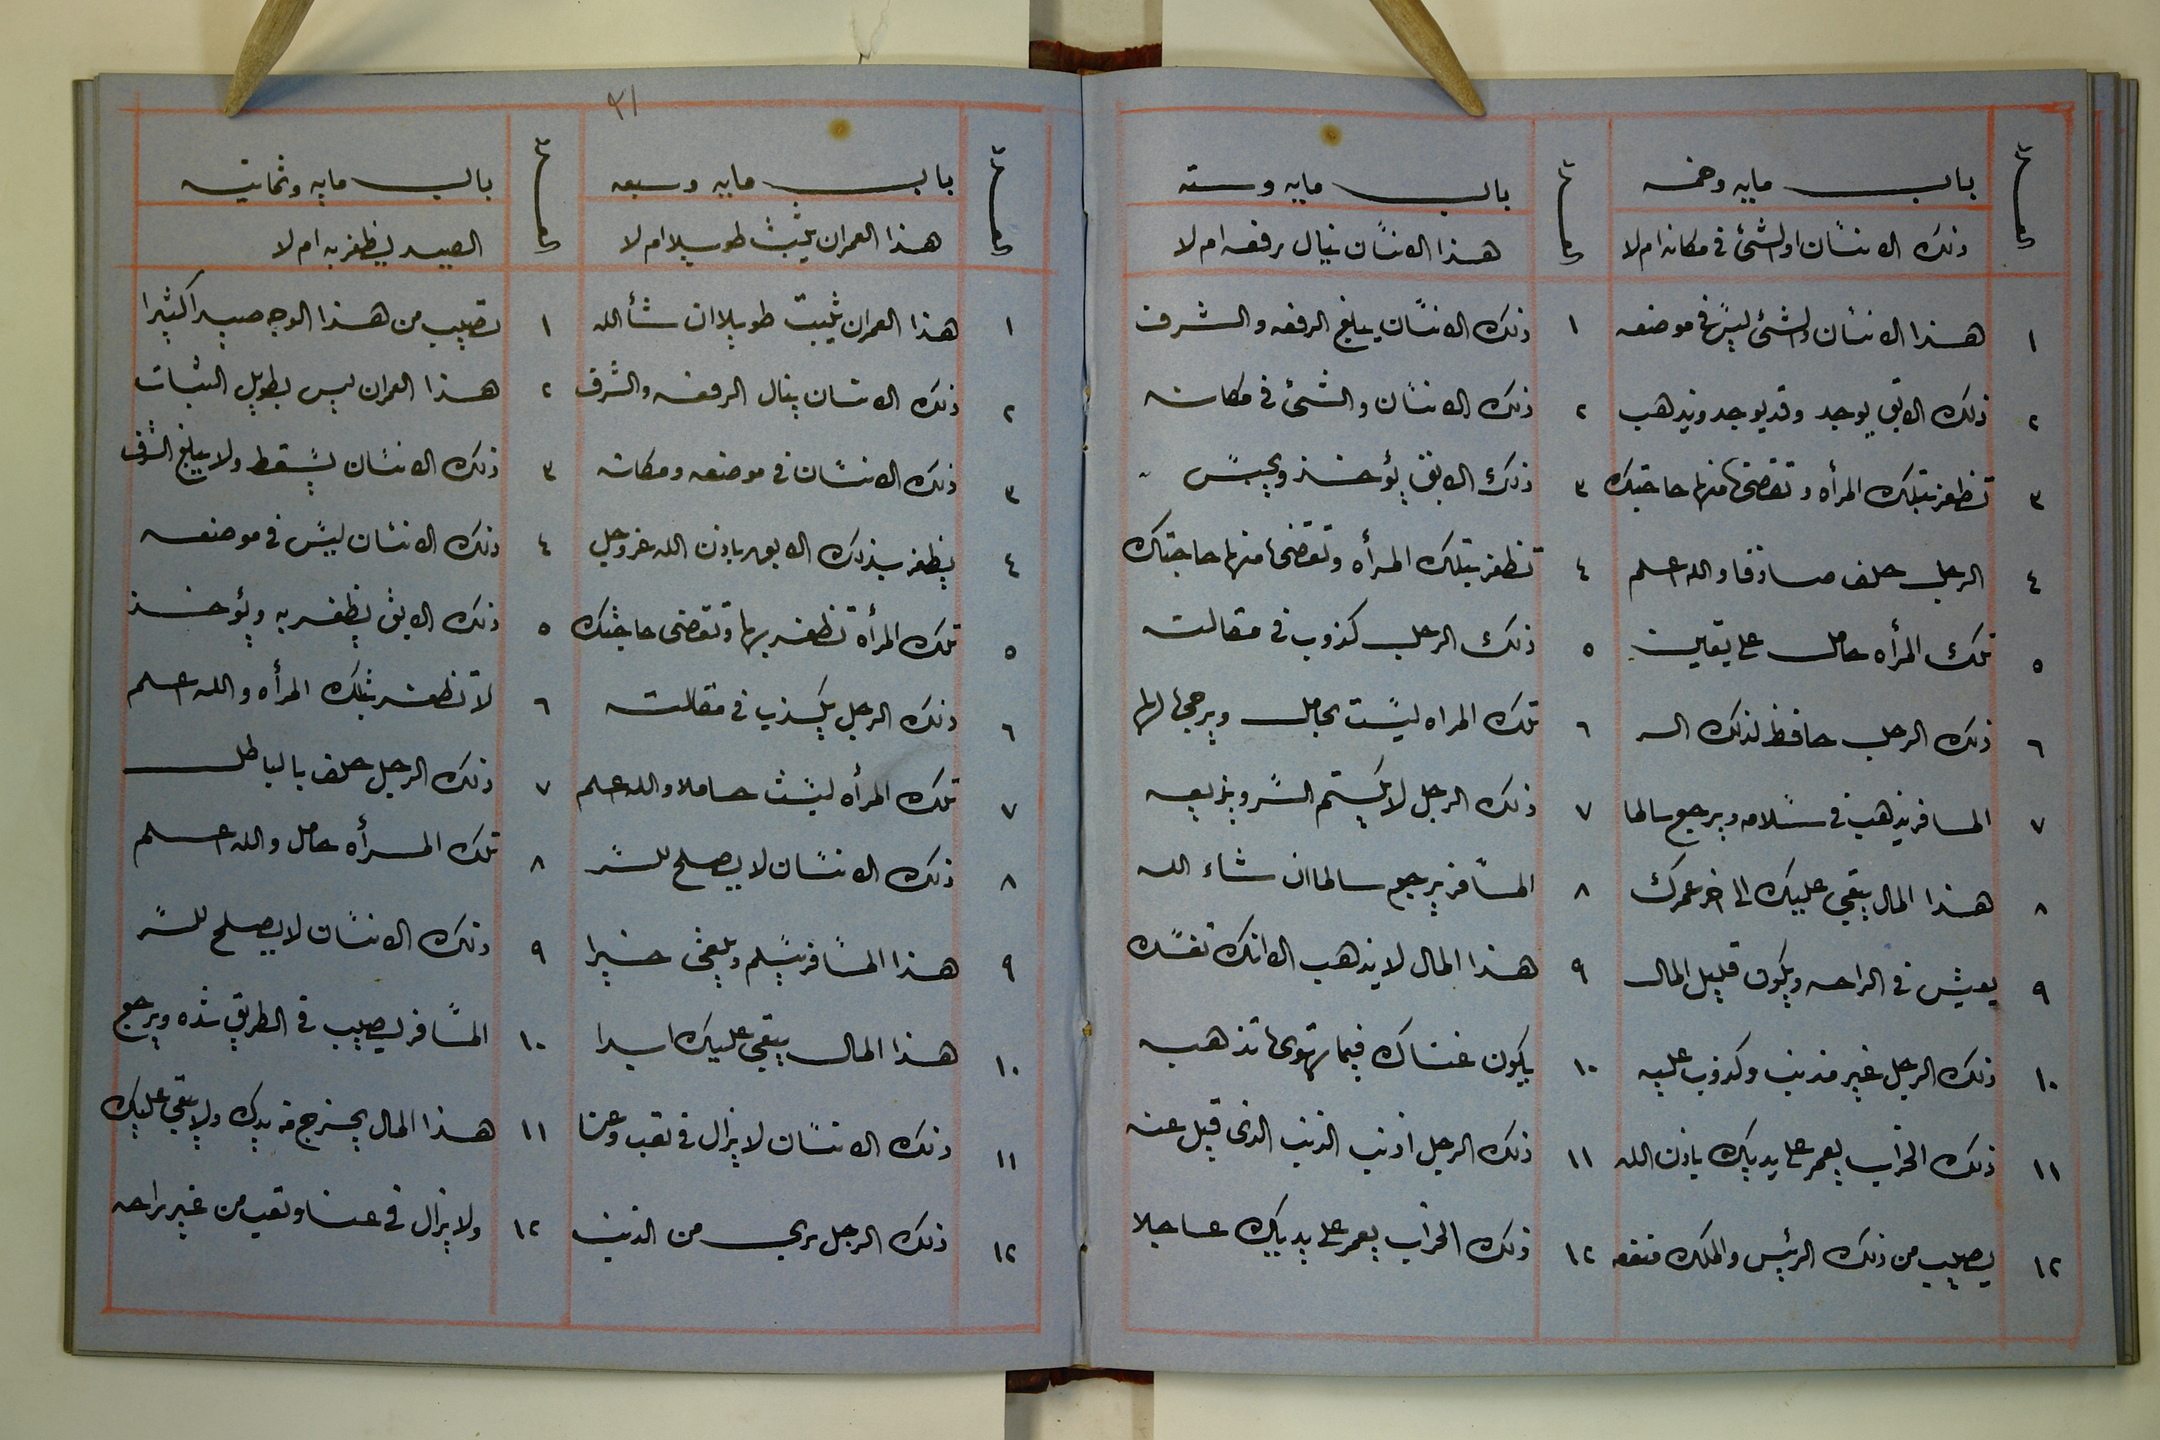 باب مايه وخمسه
ذلك الانسان او الشئ في مكانه ام لا
١ هذا الانسان والشئ ليس في موضعه
٢ ذلك الابق يوجد وقد يوجد ويذهب
٣ تظفر بتلك المرأه وتقضى منها حاجتك
٤ الرجل حلف صادقا والله اعلم
٥ تلك المرأه حامل على يقين
٦ ذلك الرجل حافظ لذلك السر
٧ المسافر يذهب في سلامه ويرجع سالما
٨ هذا المال يبقى عليك الى اخر عمرك
٩ يعيش في الراحه ويكون قليل المال
١٠ ذلك الرجل غير مذنب وكذوب عليه
١١ ذلك الخراب يعمر على يديك باذن الله
١٢ يصيب من ذلك الرئيس والملك منفعه
باب مايه وسته
هذا الانسان ينال رفعه ام لا
١ ذلك الانسان يبلغ الرفعه والشرف
٢ ذلك الانسان والشئ في مكانه
٣ ذلك الابق يؤخذ ويحبس
٤ تظفر بتلك المرأه وتقضى منها حاجتك
٥ ذلك الرجل كذوب في مقالته
٦ تلك المراه ليست بحامل ويرجى لها
٧ ذلك الرجل لا يكتم السر ويذيعه
٨ المسافر يرجع سالما ان شاء الله
٩ هذا المال لا يذهب الا انك تفسده
١٠ يكون غناك فيما تهوى تذهب
١١ ذلك الرجل اذنب الذنب الذى قيل عنه
١٢ ذلك الخراب يعمر على يديك عاجلا
٢١
باب مايه وسبعه
هذا العمران يثبت طويلا ام لا
١ هذا العمران يثبت طويلا ان شأ الله
٢ ذلك الانسان ينال الرفعه والشرف
٣ ذلك الانسان في موضعه ومكانه
٤ يظفر بذلك باذن الله عز وجل
٥ تلك المرأه تظفر بها وتقضى حاجتك
٦ ذلك الرجل يكذب في مقالته
٧ تلك المرأه ليست حاملا والله اعلم
٨ ذلك الانسان لا يصلح للسر
٩ هذا المسافر يسلم ويلقى خيرا
١٠ هذا المال يبقى عليك ابدا
١١ ذلك الانسان لا يزال في تعب وعنا
١٢ ذلك الرجل برى من الذنب
باب مايه وثمانيه
الصيد يظفر به ام لا
١ تصيب من هذا الوجه صيدا كثيرا
٢ هذا العمران ليس بطويل الثبات
٣ ذلك الانسان يسقط ولا يبلغ الشرف
٤ ذلك الانسان ليس في موضعه
٥ ذلك الابق يظفر به ويؤخذ
٦ لا تظفر بتلك المرأه والله اعلم
٧ ذلك الرجل حلف بالباطل
٨ تلك المرأه حامل والله اعلم
٩ ذلك الانسان لا يصلح للسر
١٠ المسافر يصيب في الطريق شده ويرجع
١١ هذا المال يخرج من يدك ولا يبقى عليك
١٢ ولا يزال في عنا وتعب من غير راحه